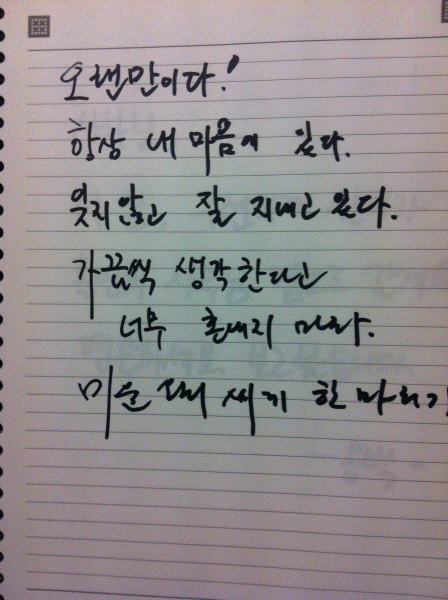 오랜만이다!
항상 내 마음에 있다.
잊지 않고 잘 지내고 있다.
가끔씩 생각한다고
너무 혼내지 마라.
미운 새끼 한 마리가